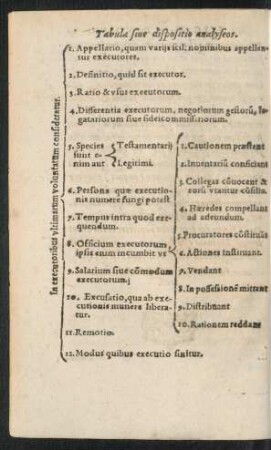 Tabula siue dispositio analyseos.
In executoribus vltimarum voluntatum consideratur.
1. Appellatio, quam varijs scil. nominibus appellen-
tur executores.
2. Definitio, quid sit executor.
3. Ratio & vsus executorum.
4. Differentia executorum, negotiorum gestorũ, le-
gatariorum siue fideicommissariorum.
5. Species sunt enim aut
Testamentarij
Legitimi.
6. Persona quæ executio-
nis munere fungi potest
7. Tempus intra quod exe-
quendum.
8. Officium executorum,
ipsis enim incumbit vt
1. Cautionem præstent
2. Inuentariũ conficiant
3. Collegas cõuocent &
eorũ vtantur cõsilio.
4. Hæredes compellant
ad adeundum.
5. Procuratores cõstituãt
6. Actiones instituant.
7. Vendant
8. In possessionẽ mittant
9. Distribuant
10. Rationem reddant
9. Salarium siue cõmodum
executorum;
10. Excusatio, qua ab exe-
cutionis munere libera-
tur.
11. Remotio.
12. Modus quibus executio finitur.